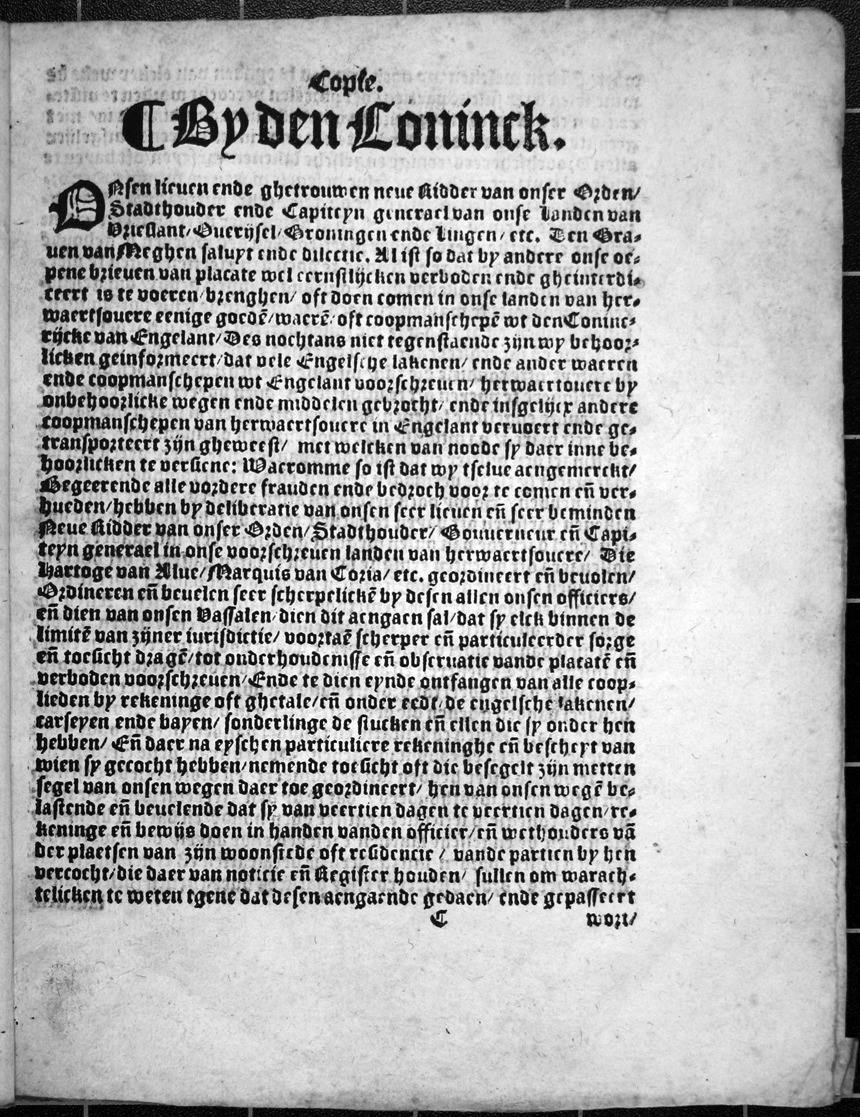 Copie.
¶ By den Coninck.
ONsen lieuen ende ghetrouwen neue Ridder van onser Orden/
Stadthouder ende Capiteyn generael van onse Landen van
Vrieslant/Ouerijsel/Groningen ende Lingen/ etc. Den Gra-
uen van Meghen saluyt ende dilectie. Al ist so dat by andere onse oe-
pene brieuen van placate wel eernstlijcken verboden ende gheinterdi-
ceert is te voeren/brenghen/ oft doen comen in onse landen van her-
waertsouere eenige goedē/waerē/oft coopmanschepē wt den Coninc-
rijcke van Engelant/Des nochtans niet tegenstaende zijn wy behoor-
licken geinformeert/dat vele Engelsche lakenen/ ende ander waeren
ende coopmanschepen wt Engelant voorschreuen/ herwaertouere by
onbehoorlicke wegen ende middelen gebrocht/ ende insgelijcx andere
coopmanschepen van herwaertsouere in Engelant veruoert ende ge-
transporteert zijn gheweest/ met welcken van noode sy daer inne be-
hoorlicken te versiene: Waeromme so ist dat wy tselue aengemerckt/
Begeerende alle vordere frauden ende bedroch voor te comen eñ ver-
hueden/hebben by deliberatie van onsen seer lieuen eñ seer beminden
Neue Ridder van onser Orden/Stadthouder/ Gouuerneur eñ Capi-
teyn generael in onse voorschreuen landen van herwaertsouere/ Die
Hartoge van Alue/Marquis van Coria/ etc. geordineert eñ beuolen/
Ordineren eñ beuelen seer scherpelickē by desen allen onsen officiers/
eñ dien van onsen Vassalen/dien dit aengaen sal/dat sy elck binnen de
limitē van zijner iurisdictie/ voortaē scherper eñ particuleerder sorge
eñ toesicht dragē/tot onderhoudenisse eñ obseruatie vande placatē eñ
verboden voorschreuen/Ende te dien eynde ontfangen van alle coop-
lieden by rekeninge oft ghetale/eñ onder eedt/de engelsche lakenen/
carseyen ende bayen/ sonderlinge de stucken eñ ellen die sy onder hen
hebben/ Eñ daer na eyschen particuliere rekeninghe eñ bescheyt van
wien sy gecocht hebben/nemende toesicht oft die besegelt zijn metten
segel van onsen wegen daer toe geordineert/ hen van onsen wegē be-
lastende eñ beuelende dat sy van veertien dagen te veertien dagen/re-
keninge eñ bewijs doen in handen vanden officier/eñ wethouders vā
der plaetsen van zijn woonstede oft residencie / vande partien by hen
vercocht/die daer van noticie eñ Register houden/ sullen om warach-
telicken te weten tgene dat desen aengaende gedaen/ ende gepasseert
C wort/